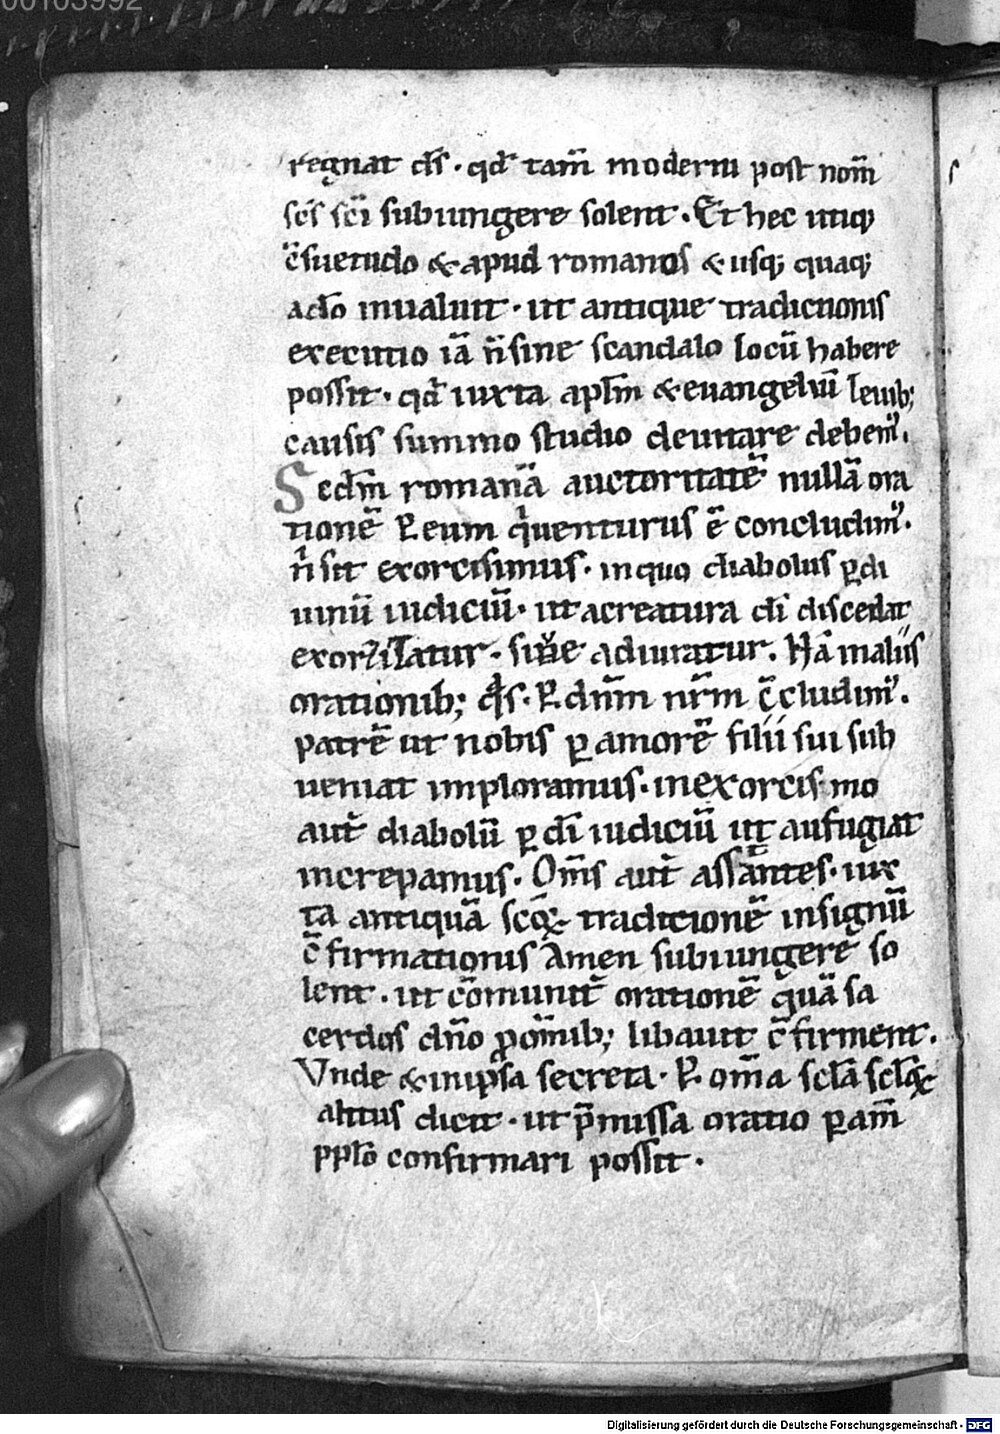 00103992
regnat dẜ · qđ tam̄ moderni post nom̄
sc̄s sc̄i subiungere solent · Et hec utiq;
c̄suetudo & apud romanos & usq; quaq;
adō inualuit · ut antique traditionis
executio iā n̄ sine scandalo locū habere
possit · qđ iuxta apl̄m & euangeliū leuib;
causis summo studio deuitare debem᷒.
Secđm romanā auctoritatē nullā ora
tionē P eum q̇ uenturus ē concludim᷒ ·
n̄ sit exorcismus · in quo diabolus ꝑ di
uinū iudiciū · ut a creatura dī discedat
exorzizatur · siue adiuratur. Nā in aliis
orationib; q̄s · P dn̄m nr̄m c̄cludim᷒.
patrē ut nobis ꝑ amorē filii sui sub
ueniat imploramus · in exorcismo
aut̄ diabolū ꝑ dī iudiciū ut aufugiat
increpamus · Om̄s aut̄ assantes · iux
ta antiquā scōꝝ traditionē in signū
c̄firmationis Amen subiungere so
lent · ut cōmunit̄ orationē quā sa
cerdos dn̄o ꝓ om̄ib; libauit c̄firment.
Vnde & in ip̄sa secreta · P om̄a sc̄la scl̄oꝝ
altius dicit · ut p̄missa oratio ꝑ am̄
pplō confirmari possit ·
Digitalisierung gefördert durch die Deutsche Forschungsgemeinschaft - DFG